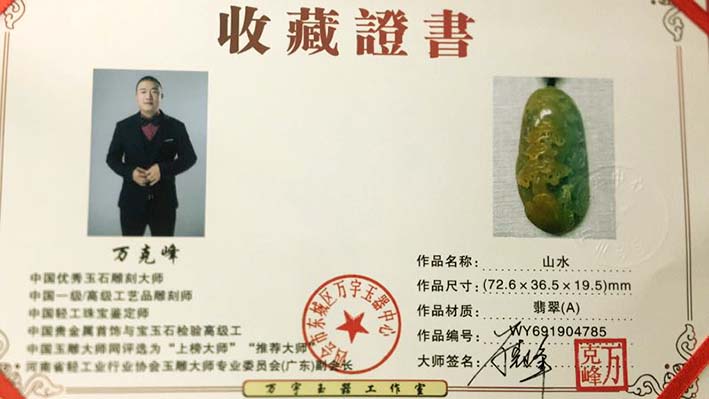 收藏證書
万克峰
中国优秀玉石雕刻大师
中国一级/高级工艺品雕刻师
中国轻工珠宝鉴定师
中国贵金属首饰与宝玉石检验高级工
中国玉雕大师网评选为“上榜大师”“推荐大师”
河南省轻工业行业协会玉雕大师专业委员会(广东)副会长
四会市东城区万宇玉器中心
作品名称: 山水
作品尺寸: (72.6×36.5×19.5)mm
作品材质: 翡翠(A)
作品编号: WY691904785
大师签名:
万克峰
万宇玉器工作室